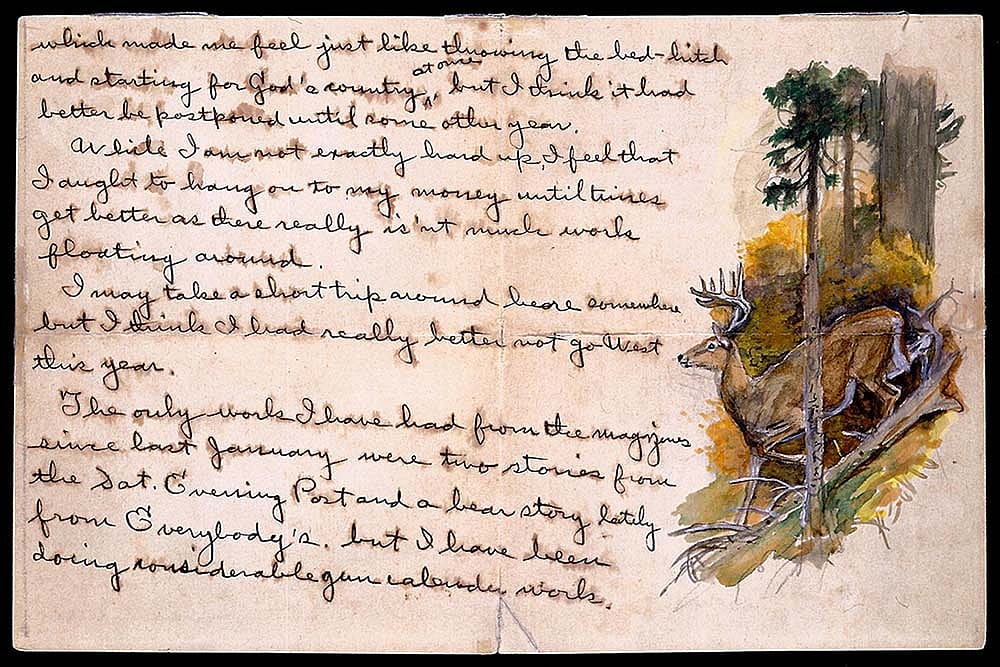 which made me feel just like throwing the bed-hitch
and starting for God's country at once, but I think it had
better be postponed until some other year.
While I am not exactly hard up, I feel that
I aught to hang on to my money until times
get better as there really is'nt much work
floating around.
I may take a short trip around heare somewhere
but I think I had really better not go West
this year.
The only work I have had from the magazines
since last January were two stories from
the Sat. Evening Post and a bear story lately
from Everybody's. but I have been
doing considerable gun calender work.